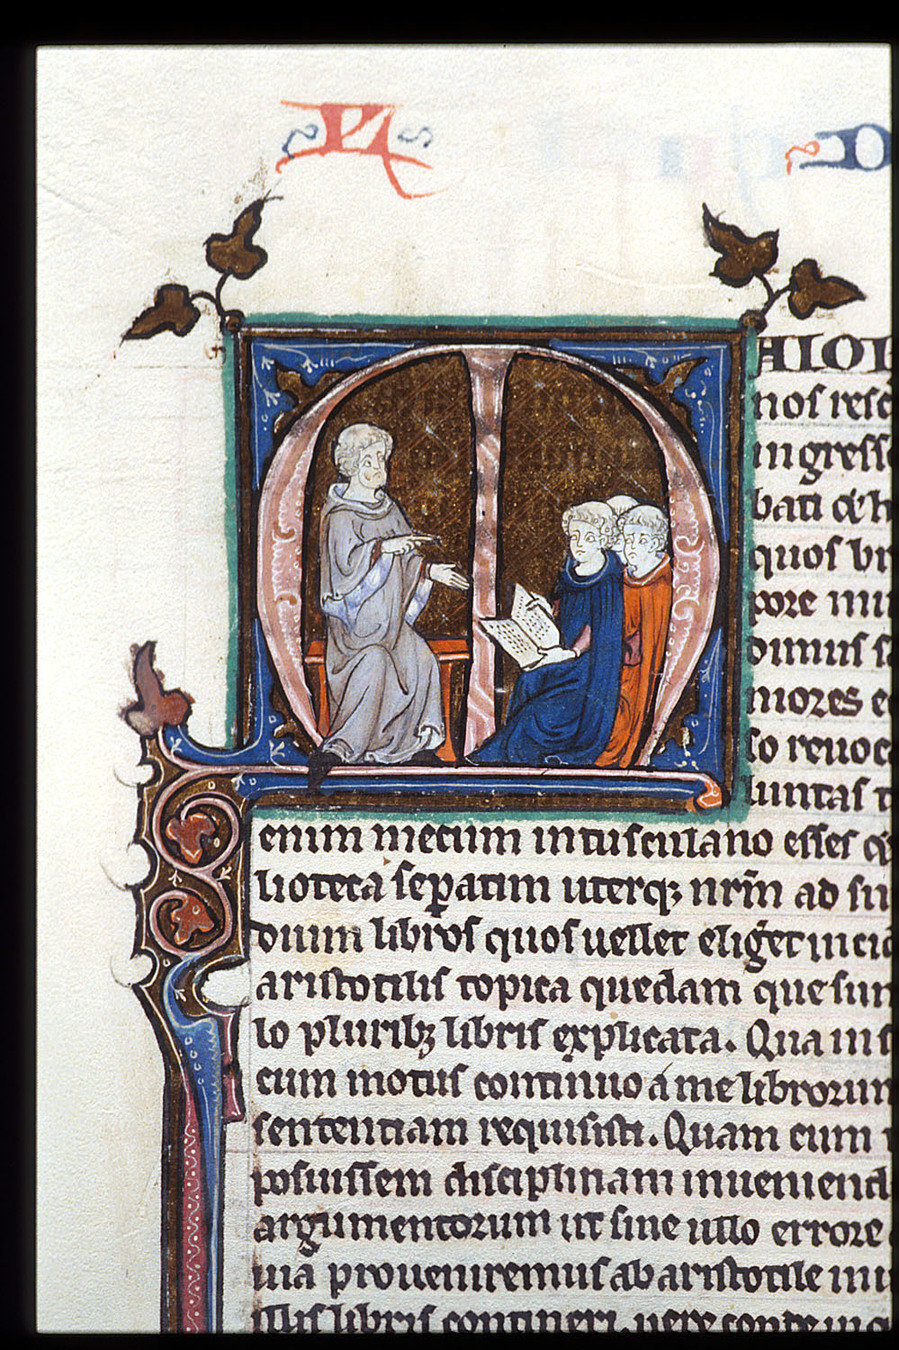 M AIOR
nos rese
ingresse
bati & h
quos br
pore mu
dimus s
mores e
to reuoc
luntas t
enim mecum in tusculano esses &
lioteca sepatim uterq; nrm ad su
dium libros quos uellet eliget incid
aristotilis topica quedam que sun
lo plurib; libris explicata. Qua ins
cum motus continuo a me librorum
sententiam requisisti. Quam cum
posuissem disciplinam inueniend
argumentorum ut sine ullo errore
uia proueniremus ab aristotile inu
illis libris contineri.